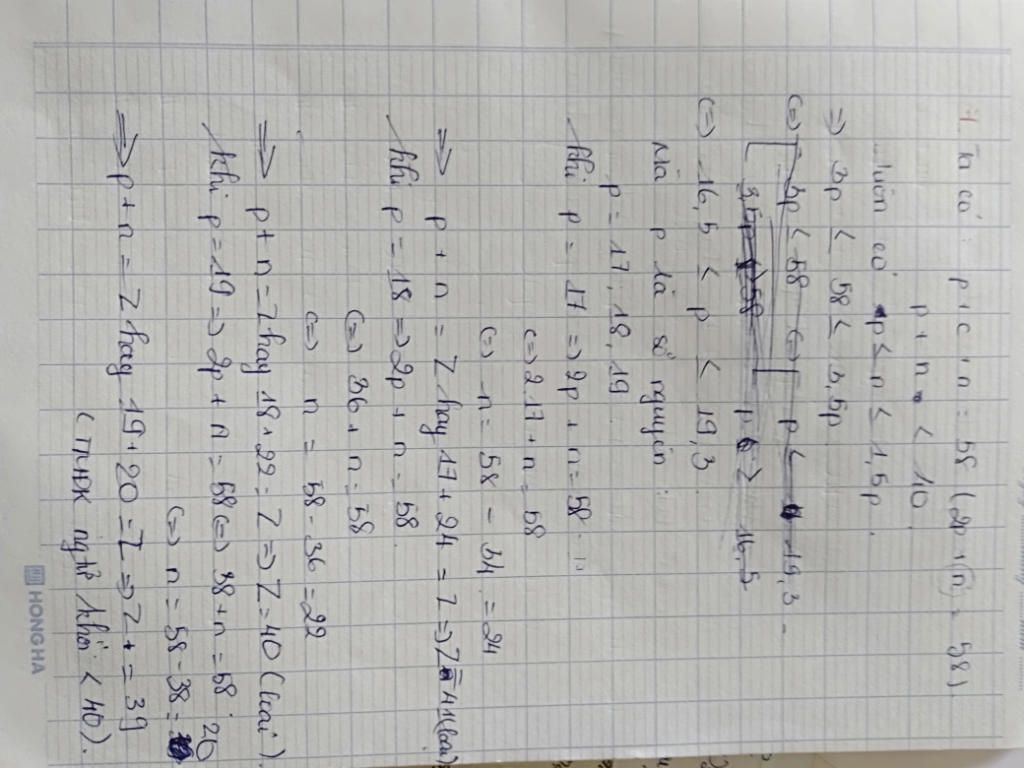 1. Ta có: p + c + n = 58 (2p + n = 58)
p + n < 10
luôn có p ≤ n ≤ 1,5p
=> 3p ≤ 58 ≤ 3,5p
<=> 3p ≤ 58 <=> p ≤ 19,3
3,5p 58 p 16,5
<=> 16,5 ≤ p ≤ 19,3
Mà p là số nguyên:
p = 17, 18, 19
khi p = 17 => 2p + n = 58
<=> 2.17 + n = 58
<=> n = 58 - 34 = 24
=> p + n = Z hay 17 + 24 = Z => Z = 41 (loại)
khi p = 18 => 2p + n = 58.
<=> 36 + n = 58
<=> n = 58 - 36 = 22
=> p + n = Z hay 18 + 22 = Z => Z = 40 (loại)
khi p = 19 => 2p + n = 58 <=> 38 + n = 58
<=> n = 58 - 38 = 20
=> p + n = Z hay 19 + 20 = Z => Z + = 39
(TMĐK ng khối < 40).
HONGHA